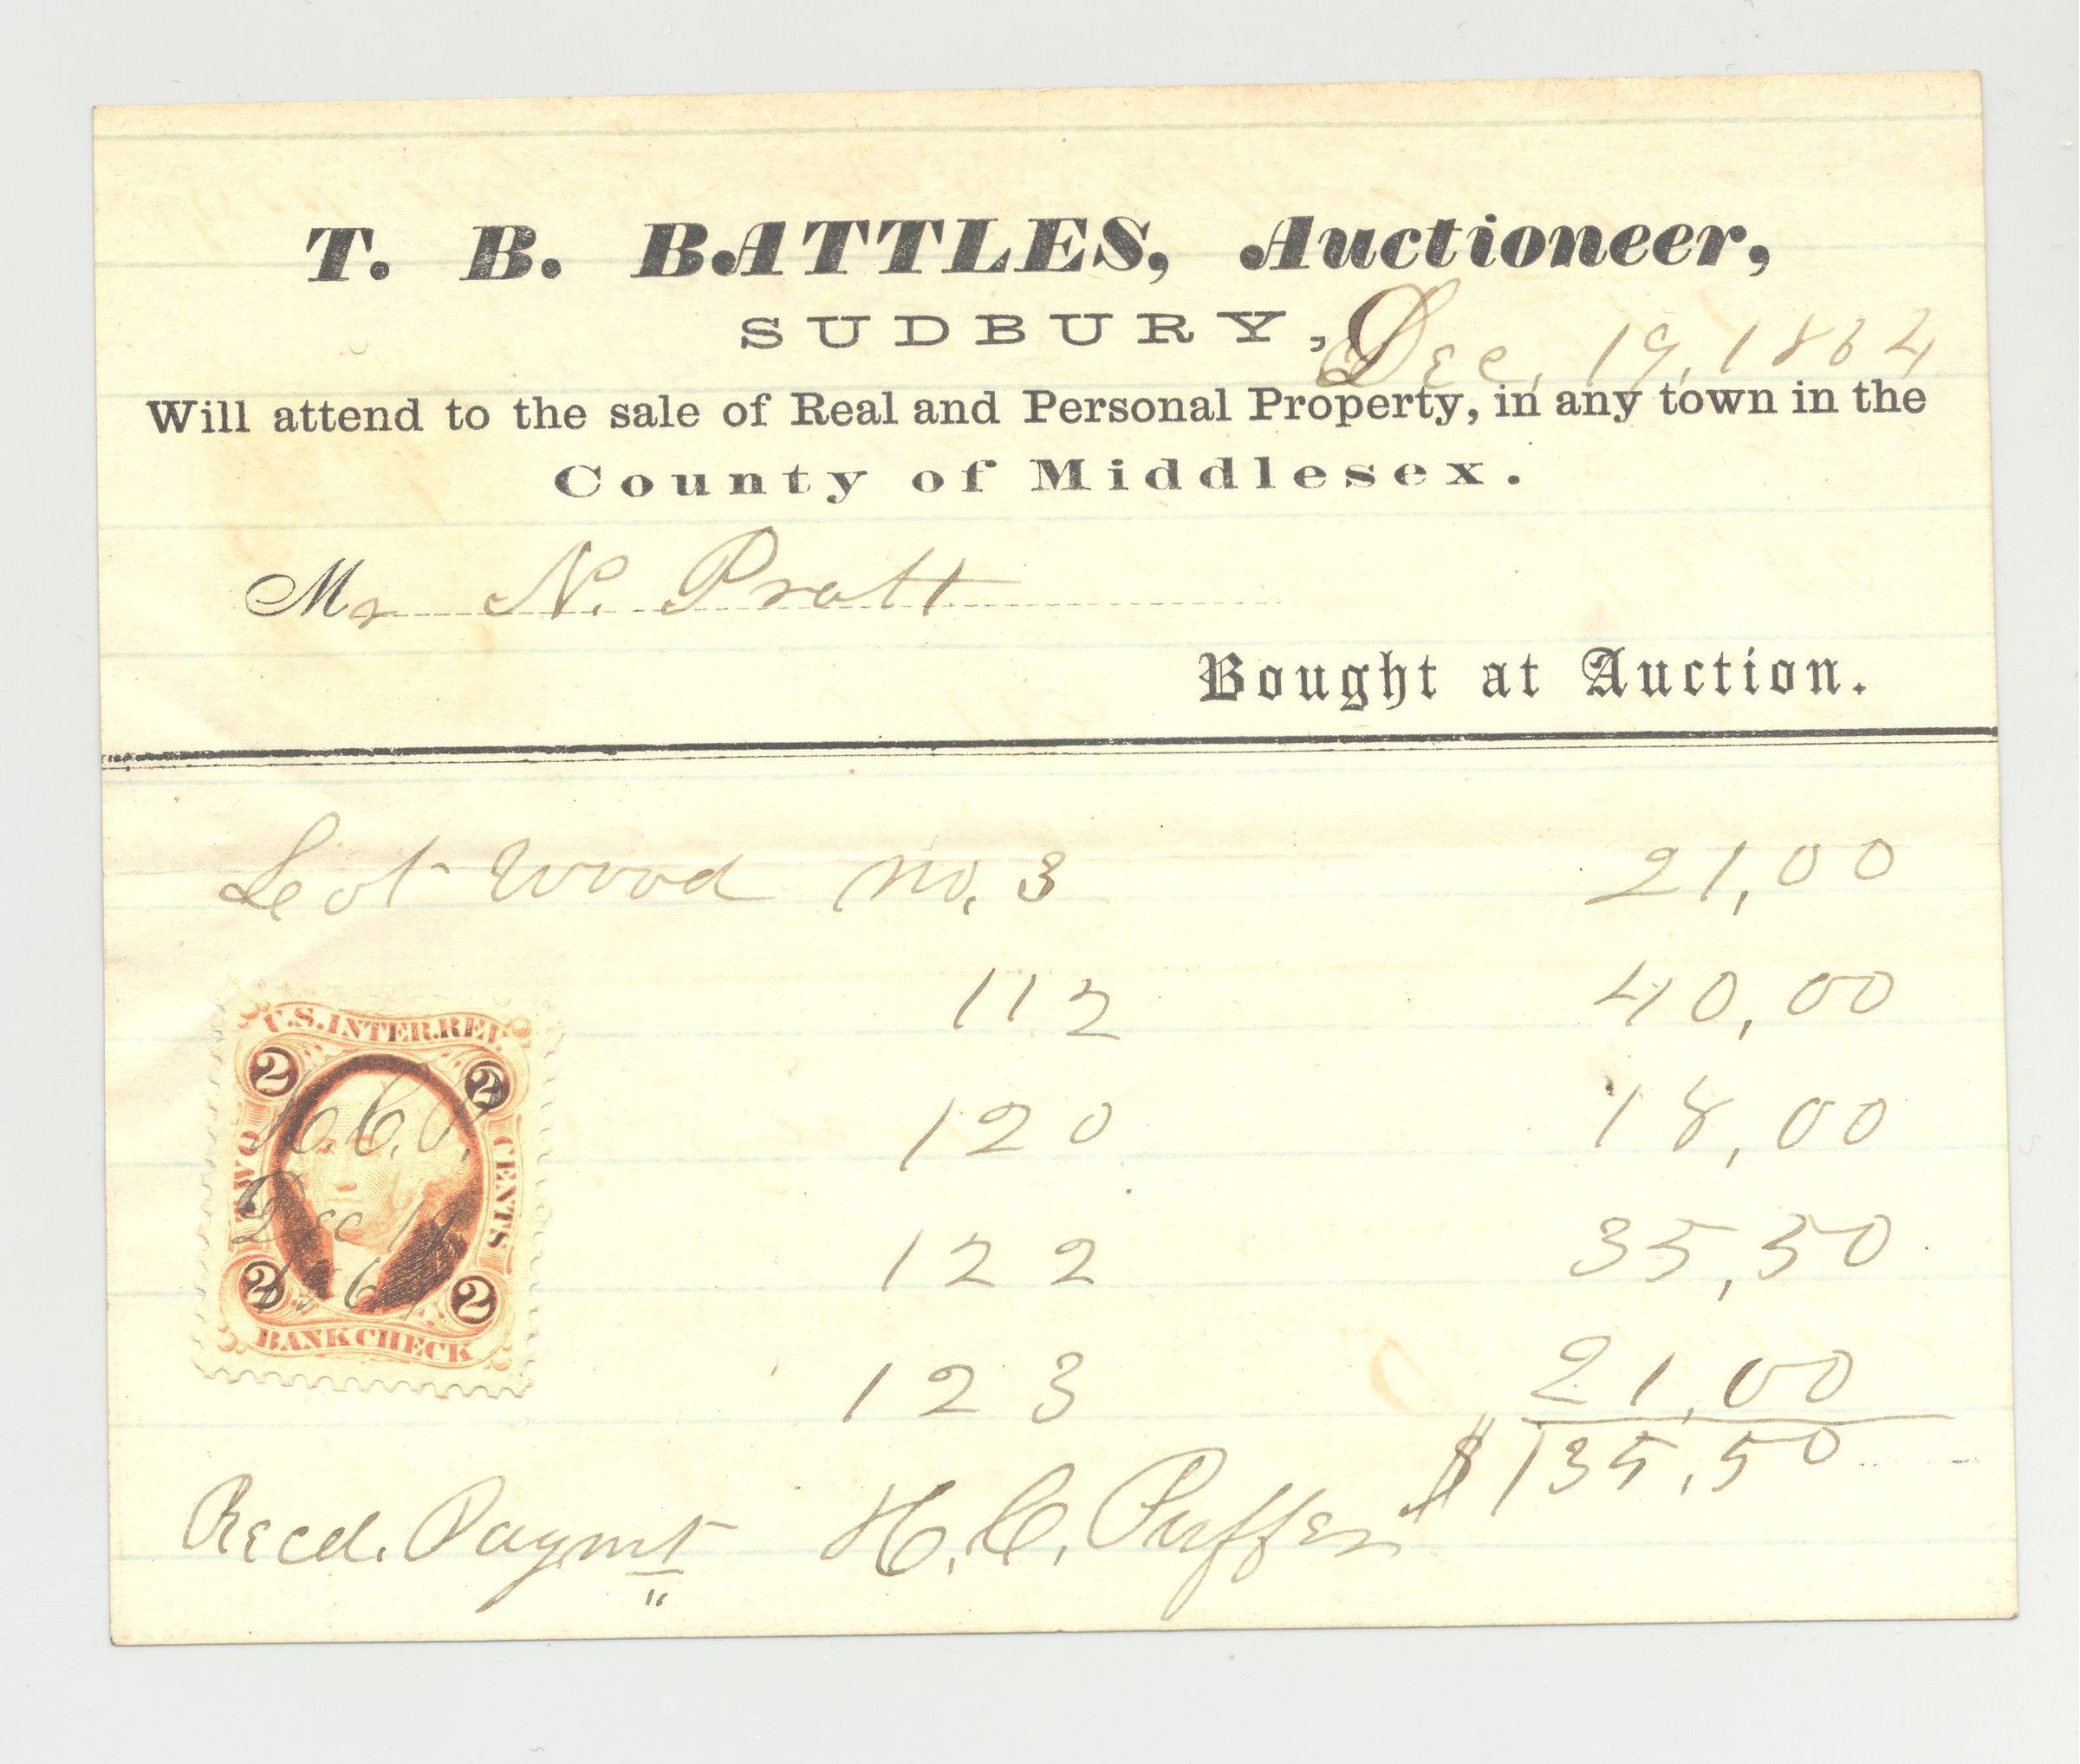 T. B. BATTLES, Auctioneer,
SUDBURY, Dec. 19, 1864
Will attend to the sale of Real and Personal Property, in any town in the
County of Middlesex.
Mr N. Pratt
Bought at Auction.
Lot Wood No. 3 21,00
112 40,00
120 18,00
122 35,50
123 21,00
$135,50
U.S. INTER. REV.
2 2
H. C. P.
TWO CENTS
Dec 19
1864
2 2
BANK CHECK
Recd. Paymt H. C. Puffer